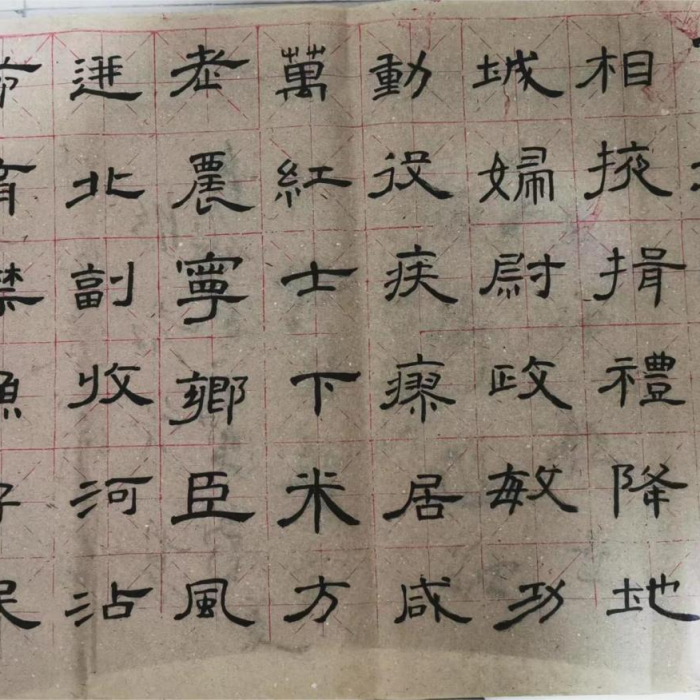 相掖揖禮降地
城婦尉政敏功
動役疾療居咸
萬紅士下米方
老農寧鄉臣風
進北副收河沾